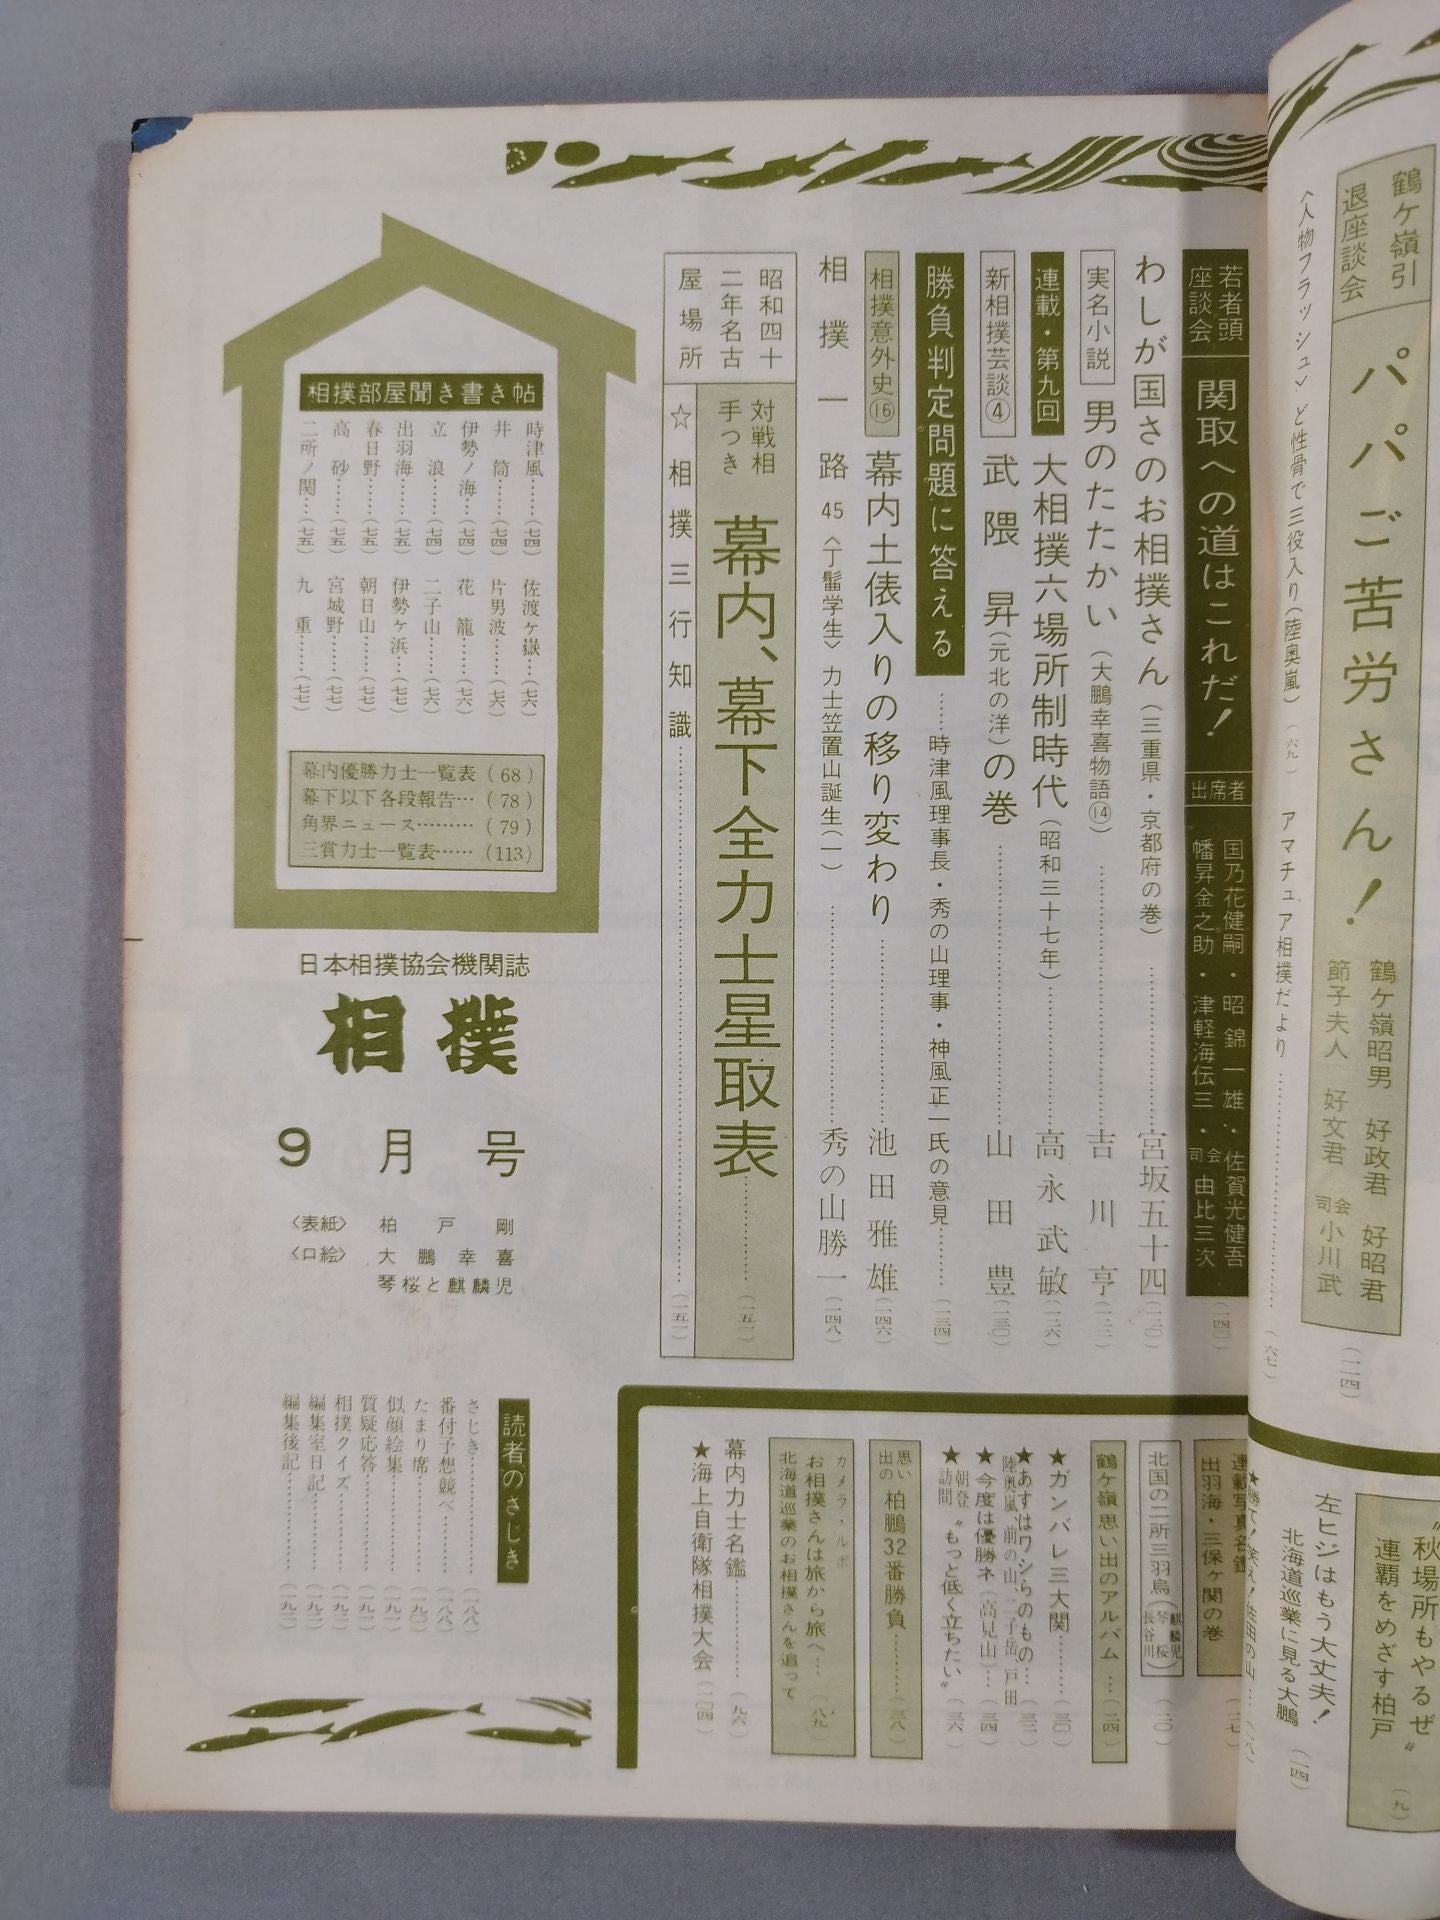 鶴ケ嶺引
退座談会
パパご苦労さん!
鶴ケ嶺昭男 好政君 好昭君
節子夫人 好文君 司会 小川武
(一二四)
〈人物フラッシュ〉ど性骨で三役入り(陸奥嵐)
(六九)
アマチュア相撲だより
(六七)
若者頭
座談会
関取への道はこれだ!
出席者
国乃花健嗣・昭錦一雄・佐賀光健吾
幡昇金之助・津軽海伝三・司会 由比三次
(一四〇)
わしが国さのお相撲さん(三重県・京都府の巻)……宮坂五十四(一二〇)
実名小説 男のたたかい(大鵬幸喜物語⑭)……吉川亨(一二二)
連載・第九回 大相撲六場所制時代(昭和三十七年)……高永武敏(一二六)
新相撲芸談④ 武隈昇(元北の洋)の巻……山田豊(一三〇)
勝負判定問題に答える……時津風理事長・秀の山理事・神風正一氏の意見……(一三四)
相撲意外史⑯ 幕内土俵入りの移り変わり……池田雅雄(一四六)
相撲一路45〈丁髷学生〉力士笠置山誕生(一)……秀の山勝一(一四八)
昭和四十
二年名古
屋場所
対戦相
手つき
幕内、幕下全力士星取表……(一五一)
☆相撲三行知識……(一五一)
相撲部屋聞き書き帖
時津風……(七四)
井筒……(七四)
伊勢ノ海…(七四)
立浪……(七四)
出羽海……(七五)
春日野……(七五)
高砂……(七五)
二所ノ関…(七五)
佐渡ケ嶽…(七六)
片男波……(七六)
花籠……(七六)
二子山……(七六)
伊勢ケ浜…(七七)
朝日山……(七七)
宮城野……(七七)
九重……(七七)
幕内優勝力士一覧表(68)
幕下以下各段報告…(78)
角界ニュース………(79)
三賞力士一覧表……(113)
日本相撲協会機関誌
相撲
9月号
〈表紙〉柏戸剛
〈口絵〉大鵬幸喜
琴桜と麒麟児
"秋場所もやるぜ"
連覇をめざす柏戸
(九)
左ヒジはもう大丈夫!
北海道巡業に見る大鵬
(一四)
★勝て!笑え!佐田の山…
連載写真名鑑
出羽海・三保ケ関の巻
北国の二所三羽烏(麒麟児 琴桜 長谷川)
(二〇)
鶴ケ嶺思い出のアルバム…(二四)
★ガンバレ三大関……(三〇)
★あすはワシらのもの…(三二)
陸奥嵐、前の山、二子岳、戸田
★今度は優勝ネ(高見山)…(三四)
★朝登訪問"もっと低く立ちたい"(三六)
思い出の 柏鵬32番勝負……(三八)
カメラ・ルポ
お相撲さんは旅から旅へ…(八九)
北海道巡業のお相撲さんを追って
幕内力士名鑑……(九六)
★海上自衛隊相撲大会(二〇四)
読者のさじき
さじき……(一八八)
番付予想競べ……(一八八)
たまり席……(一九〇)
似顔絵集……
質疑応答……
相撲クイズ……
編集室日記……
編集後記……